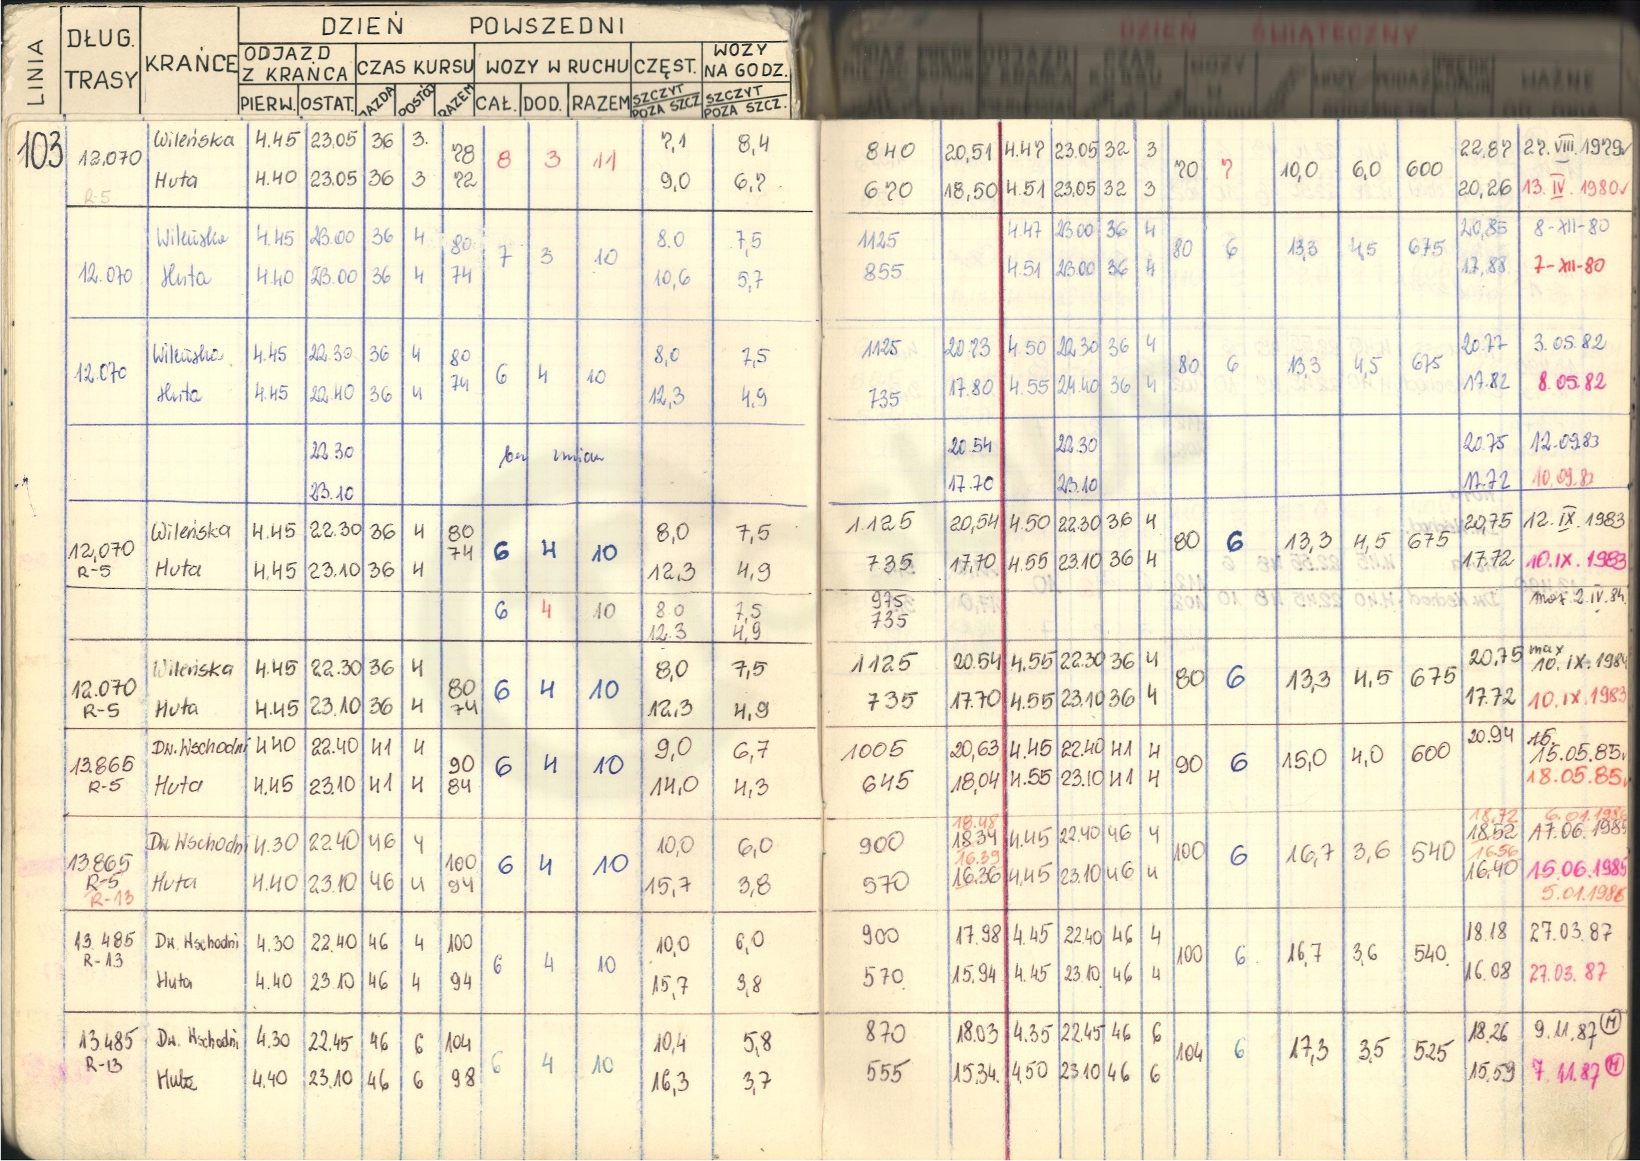 LINIA DŁUG. TRASY KRAŃCE DZIEŃ POWSZEDNI DZIEŃ ŚWIĄTECZNY
ODJAZD Z KRAŃCA CZAS KURSU WOZY W RUCHU CZĘST. WOZY NA GODZ.
PIERW. OSTAT. JAZDA POSTÓJ RAZEM CAŁ. DOD. RAZEM SZCZYT POZA SZCZ SZCZYT POZA SZCZ.
103 12.070 Wileńska 4.45 23.05 36 3. 78 8 3 11 7,1 8,4 840 20,51 4.47 23.05 32 3 70 7 10,0 6,0 600 22,87 27. VIII. 1979
R-5 Huta 4.40 23.05 36 3 72 9,0 6,7 670 18,50 4.51 23.05 32 3 20,26 13. IV. 1980
12.070 Wileńska 4.45 23.00 36 4 80 7 3 10 8.0 7,5 1125 4.47 23.00 36 4 80 6 13,3 4,5 675 20,85 8-XII-80
Huta 4.40 23.00 36 4 74 10,6 5,7 855 4.51 23.00 36 4 17,88 7-XII-80
12.070 Wileńska 4.45 22.30 36 4 80 6 4 10 8,0 7,5 1125 20.73 4.50 22.30 36 4 80 6 13,3 4,5 675 20.77 3.05.82
Huta 4.45 22.40 36 4 74 12,3 4,9 735 17.80 4.55 36 4 17.82 8.05.82
22.30 bez zmian 20.54 22.30 20.75 12.09.83
23.10 17.70 23.10 17.72 10.09.83
12,070 Wileńska 4.45 22.30 36 4 80 6 4 10 8,0 7,5 1125 20,54 4.50 22.30 36 4 80 6 13,3 4,5 675 20,75 12. IX. 1983
R-5 Huta 4.45 23.10 36 4 74 12.3 4,9 735 17,70 4.55 23.10 36 4 17,72 10.IX.1983
6 4 10 8.0 7,5 975 2.IV.84
12.3 4,9 735
12.070 Wileńska 4.45 22.30 36 4 80 6 4 10 8,0 7,5 1125 20.54 4.55 22.30 36 4 80 6 13,3 4,5 675 20,75 max 10.IX.1984
R-5 Huta 4.45 23.10 36 4 74 12.3 4,9 735 17.70 4.55 23.10 36 4 17.72 10.IX.1983
13.865 Dw.Wschodni 4.40 22.40 41 4 90 6 4 10 9,0 6,7 1005 20,63 4.45 22.40 41 4 90 6 15,0 4,0 600 20.94 15. 15.05.85
R-5 Huta 4.45 23.10 41 4 84 14,0 4,3 645 18,04 4.55 23.10 41 4 18.05.85
18.48 18,72 6.01.1986
13865 Dw.Wschodni 4.30 22.40 46 4 100 6 4 10 10,0 6,0 900 18.34 4.45 22.40 46 4 100 6 16,7 3,6 540 18.52 17.06.1985
R-5 16.39 16.56
R-13 Huta 4.40 23.10 46 4 94 15,7 3,8 570 16.36 4.45 23.10 46 4 16.40 15.06.1985
5.01.1986
13.485 Dw. Wschodni 4.30 22.40 46 4 100 6 4 10 10,0 6,0 900 17.98 4.45 22.40 46 4 100 6. 16,7 3,6 540. 18.18 27.03.87
R-13 Huta 4.40 23.10 46 4 94 15,7 3,8 570. 15,94 4.45 23.10 46 4 16.08 27.03.87
13.485 Dw. Wschodni 4.30 22.45 46 6 104 6 4 10 10,4 5,8 870 18.03 4.35 22.45 46 6 104 6 17,3 3,5 525 18.26 9.11.87 M
R-13 Huta 4.40 23.10 46 6 98 16,3 3,7 555 15.34. 4.50 23.10 46 6 15,59 7.11.87 M